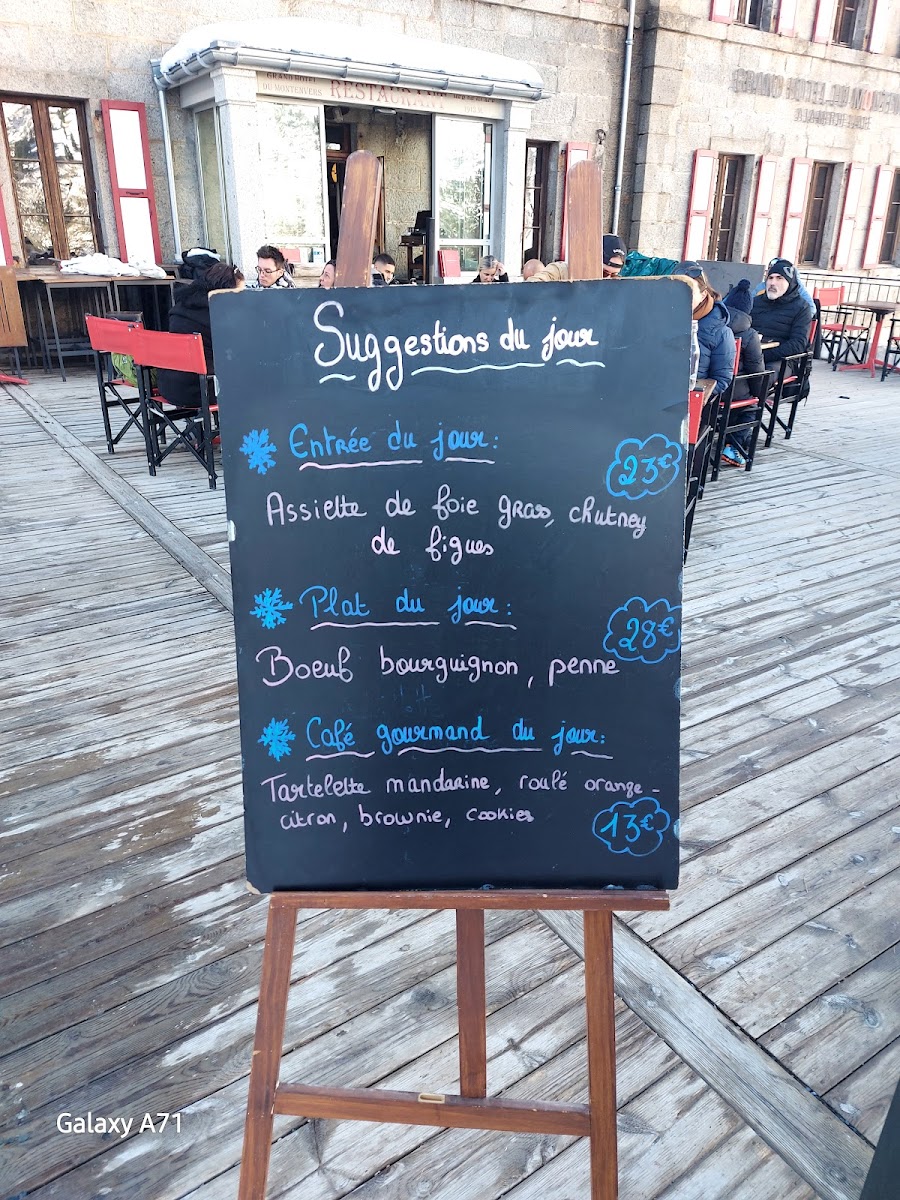 GRAND HÔTEL
DU MONTENVERS
RESTAURANT
GRAND HÔTEL DU MONTENVERS
Suggestions du jour
Entrée du jour:
23€
Assiette de foie gras, chutney
de figues
Plat du jour:
28€
Boeuf bourguignon, penne
Café gourmand du jour:
Tartelette mandarine, roulé orange-
citron, brownie, cookies
13€
Galaxy A71